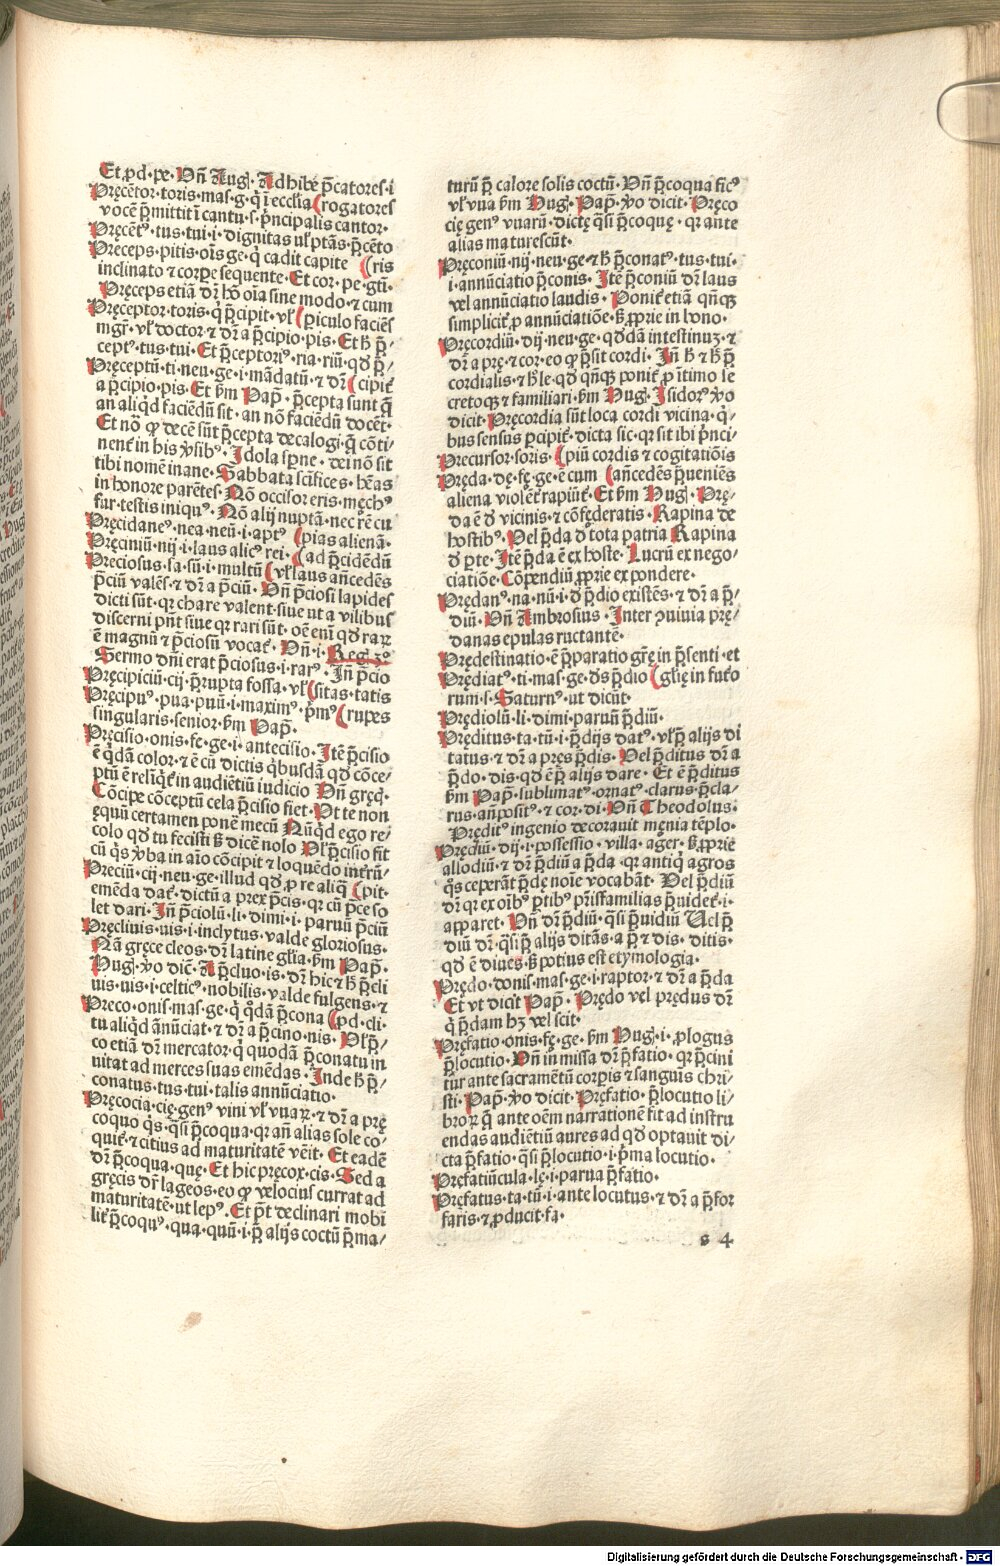 Et ꝓd·pe·Vn̄ Aug·Adhibe p̄catores·i
Pręcētor·toris·mas·g·q̇ ī eccl̄ia (rogatores
vocē p̄mittit ī cantu·s·pͥncipalis cantor·
Pręcētꝰ·tus·tui·i·dignitas uł ptās·p̄cēto
Pręceps·pitis·oīs ge·q̇ cadit capite (ris
inclinato ⁊ corpe sequente·Et cor·pe·gtī·
Pręceps etiā dr̄ hō oīa sine modo·⁊ cum
Pręceptor·toris·q̇ p̄cipit·vł (piculo faciēs
mgr̄·vł doctor·⁊ dr̄ a p̄cipio·pis·Et h̄ p̄/
ceptꝰ·tus·tui·Et p̄ceptoriꝰ·ria·riū·qd̄ p̄/
Pręceptū·ti·neu·ge·i·mādatū·⁊ dr̄ (cipit̄
a p̄cipio·pis·Et ẜm Pap̄·p̄cepta sunt q̄
an aliqd̄ faciēdū sit·an nō faciēdū docēt·
Et nō ꝙ decē sūt p̄cepta decalogi·q̄ cōti/
nent̄ in his ꝟsibꝰ·Idola sperne·dei nō sit
tibi nomē inane·Sabbata sc̄ifices·hēas
in honore parētes·Nō occisor eris·męchꝰ
fur·testis iniquꝰ·Nō alij nuptā·nec rē cu
Pręcidaneꝰ·nea·neū·i·aptꝰ (pias alienā·
Pręciniū·nij·i·laus alicꝰ rei·(ad p̄cidēdū
Preciosus·sa·sū·i·multū (vł laus an̄cedēs
p̄ciū valēs·⁊ dr̄ a p̄ciū·Vn̄ p̄ciosi lapides
dicti sūt·qr chare valent·siue ut a vilibus
discerni pn̄t siue qr rari sūt·oē eni qd̄ raꝝ
ē magnū ⁊ p̄ciosū vocat̄·Vn̄·i·Reg 3º
Sermo dn̄i erat p̄ciosus·i·rarꝰ·In̄ p̄cio
Pręcipiciū·cij·p̄rupta fossa·vł (sitas·tatis
Pręcipuꝰ·pua·puū·i·maximꝰ·p̄mꝰ (rupes
singularis·senior·ẜm Pap̄·
Pręcisio·onis·fe·ge·i·antecisio·Itē p̄cisio
ē q̇dā color·⁊ ē cū dictis q̇busdā qd̄ cōce/
ptū ē reliq̇t in audiētiū iudicio Vn̄ gręcꝭ·
Cōcipe cōceptū cela p̄cisio fiet·Vt te non
ęquū certamen ponē mecū Nūqd̄ ego re/
colo qd̄ tu fecisti ẜ dicē nolo Vł p̄cisio fit
cū q̇s ꝟba in aīo cōcipit ⁊ loquēdo int̄rū/
Preciū·cij·neu·ge·illud qd̄ ꝓ re aliq̄ (pit·
emēda dat̄·dictū a prex p̄cis·qr cū p̄ce so
let dari·In̄ p̄ciolū·li·dimi·i·paruū p̄ciū
Pręcliuis·uis·i·inclytus·valde gloriosus·
Nā gręce cleos·dr̄ latine gl̄ia·ẜm Pap̄·
Hug·ꝟo dic̄·A p̄cluo·is·dr̄ hic ⁊ h̄ p̄cli
uis·uis·i·celticꝰ·nobilis·valde fulgens·⁊
Preco·onis·mas·ge·q̇ q̇dā p̄cona (pd·cli·
tu aliqd̄ an̄nūciat·⁊ dr̄ a p̄cino·nis·Vł p̄/
co etiā dr̄ mercator·q̇ quodā p̄conatu in
uitat ad merces suas emēdas·Inde h̄ p̄/
conatus·tus·tui·talis annūciatio·
Pręcocia·cię·genꝰ vini vł vuaꝝ·⁊ dr̄ a prę
coquo q̇s·q̇si p̄coqua·qr an̄ alias sole co/
quit̄ ⁊ citius ad maturitatē vēit·Et eadē
dr̄ p̄coqua·que·Et hic pręcox·cis·Sed a
gręcis dr̄ lageos·eo ꝙ velocius currat ad
maturitatē·ut lepꝰ·Et p̄t declinari mobi
lit̄ p̄coquꝰ·qua·quū·i·p̄ alijs coctū p̄ ma/
turū p̄ calore solis coctū·Vn̄ p̄coqua ficꝰ
vł vua ẜm Hug·Pap̄·ꝟo dicit·Pręco
cię genꝰ vuarū·dictę q̇si p̄coquę·qr ante
alias maturescūt·
Pręconiū·nij·neu·ge·⁊ h̄ p̄conatꝰ·tus·tui·
i·annūciatio p̄conis·Itē p̄coniū dr̄ laus
vel annūciatio laudis·Ponit̄ etiā qn̄qꝫ
simplicit̄ ꝓ annūciatiōe·ẜ ꝓprie in bono·
Pręcordiū·dij·neu·ge·qd̄dā intestinuꝫ·⁊
dr̄ a prę·⁊ cor·eo ꝙ p̄sit cordi·In̄ h̄ ⁊ h̄ p̄
cordialis·⁊ h̄ le·qd̄ qn̄qꝫ ponit̄ ꝓ ītimo se
cretoqꝫ ⁊ familiari·ẜm Hug·Isidorꝰ ꝟo
dicit·Pręcordia sūt loca cordi vicina·q̇/
bus sensus p̄cipit̄·dicta sic·qr sit ibi pͥnci/
Precursor·soris·(piū cordis ⁊ cogitatiōis
Pręda·dę·fę·ge·ē cum (an̄cedēs p̄ueniēs
aliena violēt̄ rapiūt̄·Et ẜm Hug·Prę/
da ē d̄ vicinis·⁊ cōfęderatis·Rapina de
hostibꝰ·Vel p̄da d̄ tota patria Rapina
d̄ p̄te·Itē p̄da ē ex hoste·Lucrū ex nego/
ciatiōe·Cōpendiū ꝓprie ex pondere·
Prędanꝰ·na·nū·i·d̄ p̄dio existēs·⁊ dr̄ a p̄/
diū·Vn̄ Ambrosius·Inter ꝯuiuia prę/
danas epulas ructantē·
Prędestinatio·ē p̄paratio grę in p̄senti·et
Prędiatꝰ·ti·mas·ge·dꝰs p̄dio (glię in futo
rum·s·Saturnꝰ·ut dicūt·
Prędiolū·li·dimi·paruū p̄diū·
Pręditus·ta·tū·i·p̄dijs datꝰ·vł p̄ alijs di
tatus·⁊ dr̄ a pręs p̄dis·Vel p̄ditus dr̄ a
p̄do·dis·qd̄ ē p̄ alijs dare·Et ē p̄ditus
ẜm Pap̄·sublimatꝰ·ornatꝰ·clarus·p̄cla/
rus·an̄positꝰ·⁊ cor·di·Vn̄ Theodolus·
Pręditꝰ ingenio decorauit męnia tēplo·
Prędiū·dij·i·possessio·villa·ager·ẜ ꝓprie
allodiū·⁊ dr̄ p̄diū a p̄da·qr antiq̇ agros
q̇s ceperāt p̄dę noīe vocabāt·Vel p̄diū
dr̄ qr ex oībꝰ ptibꝰ pr̄isfamilias p̄uidet̄·i·
apparet·Vn̄ dr̄ p̄diū·q̇si p̄uidiū Uel p̄
diū dr̄·q̇si p̄ alijs ditās·a p̄ ⁊ dis·ditis·
qd̄ ē diues·ẜ potius est etymologia·
Prędo·donis·mas·ge·i·raptor·⁊ dr̄ a p̄da
Et vt dicit Pap̄·Prędo vel prędus dr̄
q̇ p̄dam hꝫ vel scit·
Pręfatio·onis·fę·ge·ẜm Hug·i·ꝓlogus
p̄locutio·Vn̄ in missa dr̄ p̄fatio·qr p̄cini
tur ante sacramētū corpis ⁊ sanguis chri/
sti·Pap̄·ꝟo dicit·Pręfatio·p̄locutio li/
broꝝ q̄ ante oēm narrationē fit ad instru
endas audiētiū aures ad qd̄ optauit di/
cta p̄fatio·q̇si p̄locutio·i·pͥma locutio·
Pręfatiūcula·lę·i·parua p̄fatio·
Pręfatus·ta·tū·i·ante locutus·⁊ dr̄ a p̄for
faris·⁊ ꝓducit·fa·
s 4
Digitalisierung gefördert durch die Deutsche Forschungsgemeinschaft · DFG